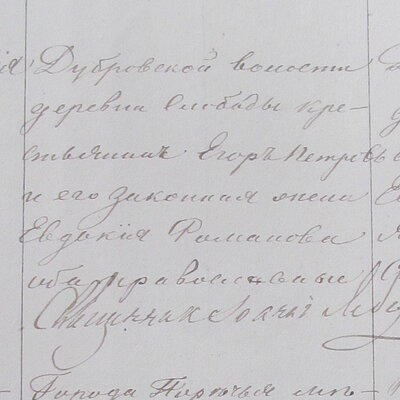 Дубровской волости
деревни Слободы кре-
стьянинъ Егоръ Петровъ
и его законная жена
Евдокія Романова
оба православные
Священник Іоаннъ
Города Порѣчья мѣ-